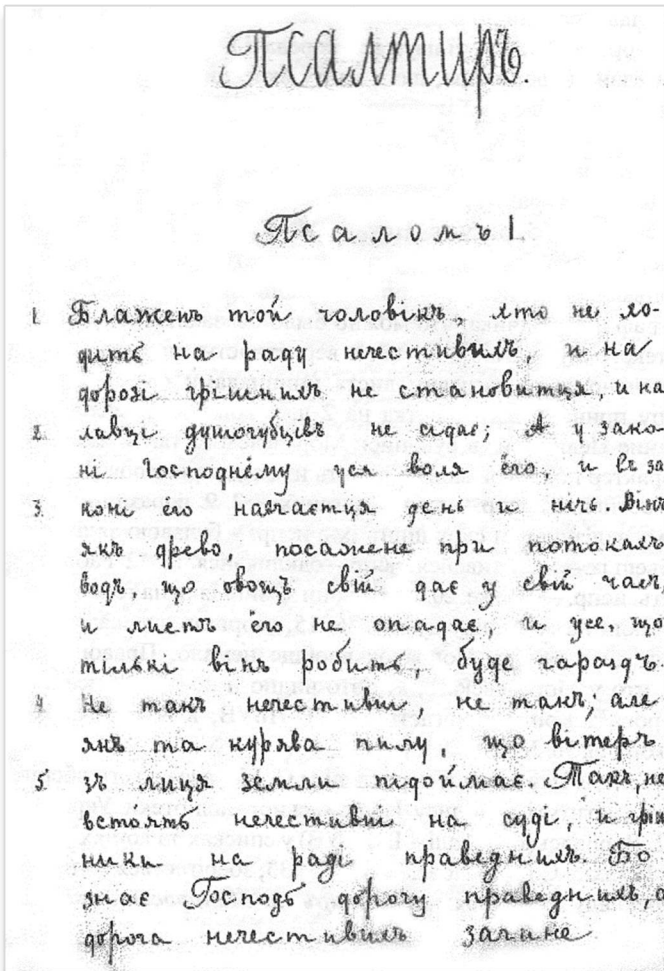 Псалтиръ.
Псаломъ I.
1. Блаженъ той чоловікъ, хто не хо-
дить на раду нечестивихъ, и на
дорозі грішнихъ не становитця, и на
2. лавці душогубцівъ не сідає; А у зако-
ні Господнёму уся воля ёго, и въ за
3. коні ёго навчаетця день и нічь. Вінъ
якъ древо, посажене при потокахъ
водъ, що овощъ свій дає у свій часъ,
и листъ ёго не опадає, и усе, що
тількі вінъ робить, буде гараздъ.
4 Не такъ нечестивиі, не такъ, але
якъ та курява пилу, що вітеръ
5. зъ лиця земли підоймає. Такъ, не
встоять нечестивиі на суді, и гріш
ники на раді праведнихъ. Бо
знає Господь дорогу праведнихъ, а
дорога нечестивихъ загине